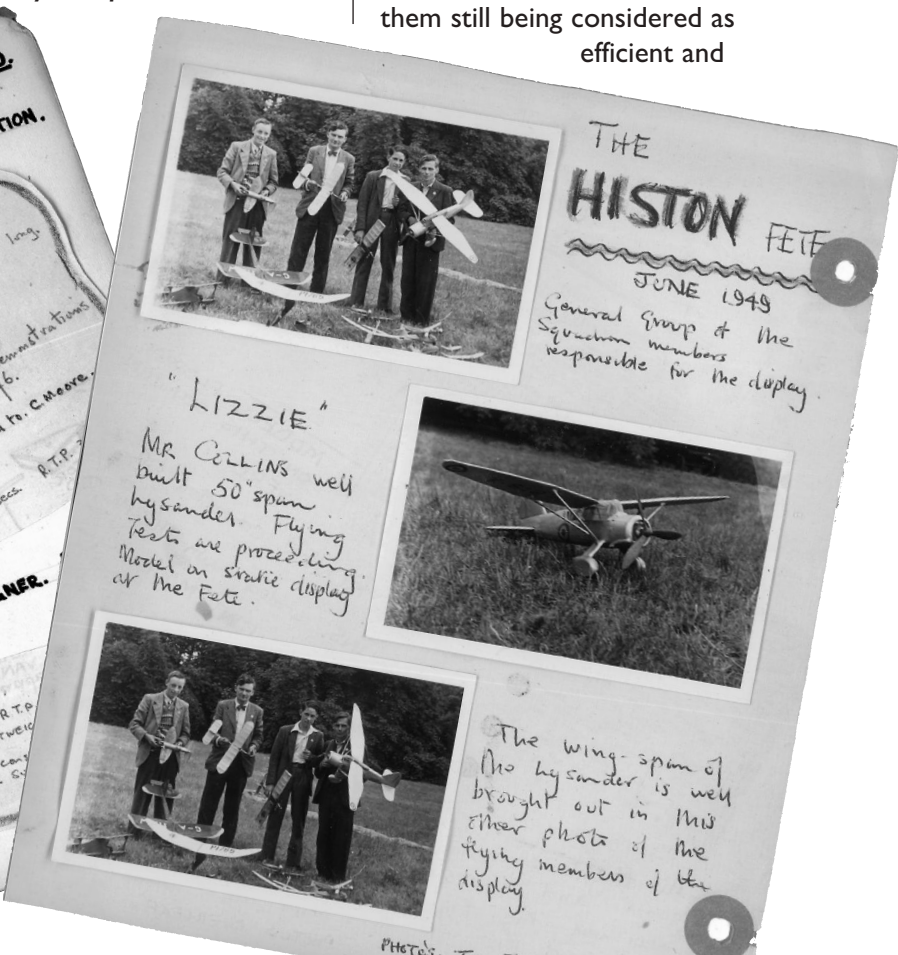 them still being considered as
efficient and
THE
HISTON FETE
JUNE 1949
General Group of the
Squadron members
responsible for the display.
"LIZZIE"
MR COLLINS well
built 50" span
Lysander. Flying
Tests are proceeding.
Model on static display
at the Fete.
The wing-span of
the Lysander is well
brought out in this
other photo of the
flying members of the
display.
PHOTO'S
TION.
long.
to. C. Moore.
R.T.P.
NER.
R T.P.